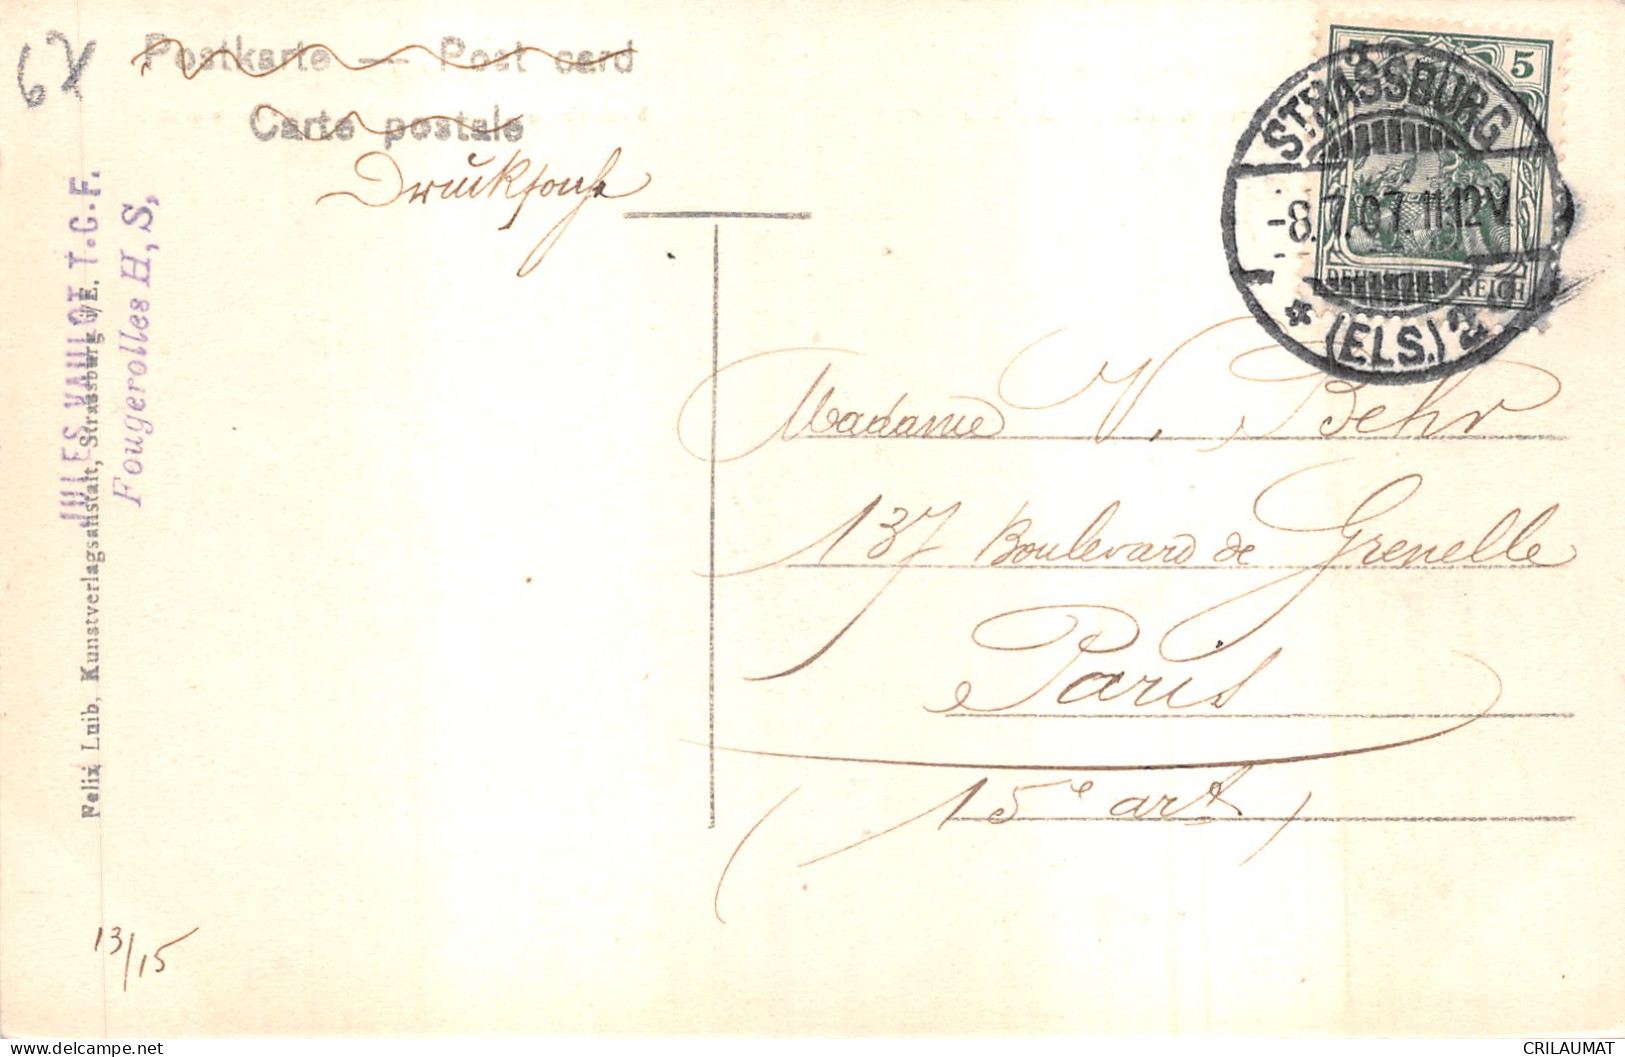 67
Postkarte — Post card
Carte postale
Drucksache
5 5
STRASSBURG
-8.7.07.11-12V
DEUTSCHES REICH
* (ELS.) 2
JULES VAULOT T.C.F.
Fougerolles H, S,
Felix Luib, Kunstverlagsanstalt, Strassburg i/E.
Madame V. Behr
137 Boulevard de Grenelle
Paris
(15e art)
13/15
CRILAUMAT